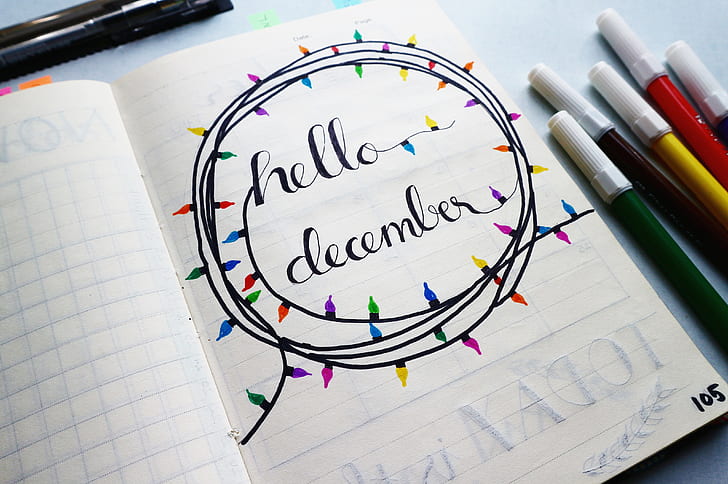 Date:
Page:
hello
december
105